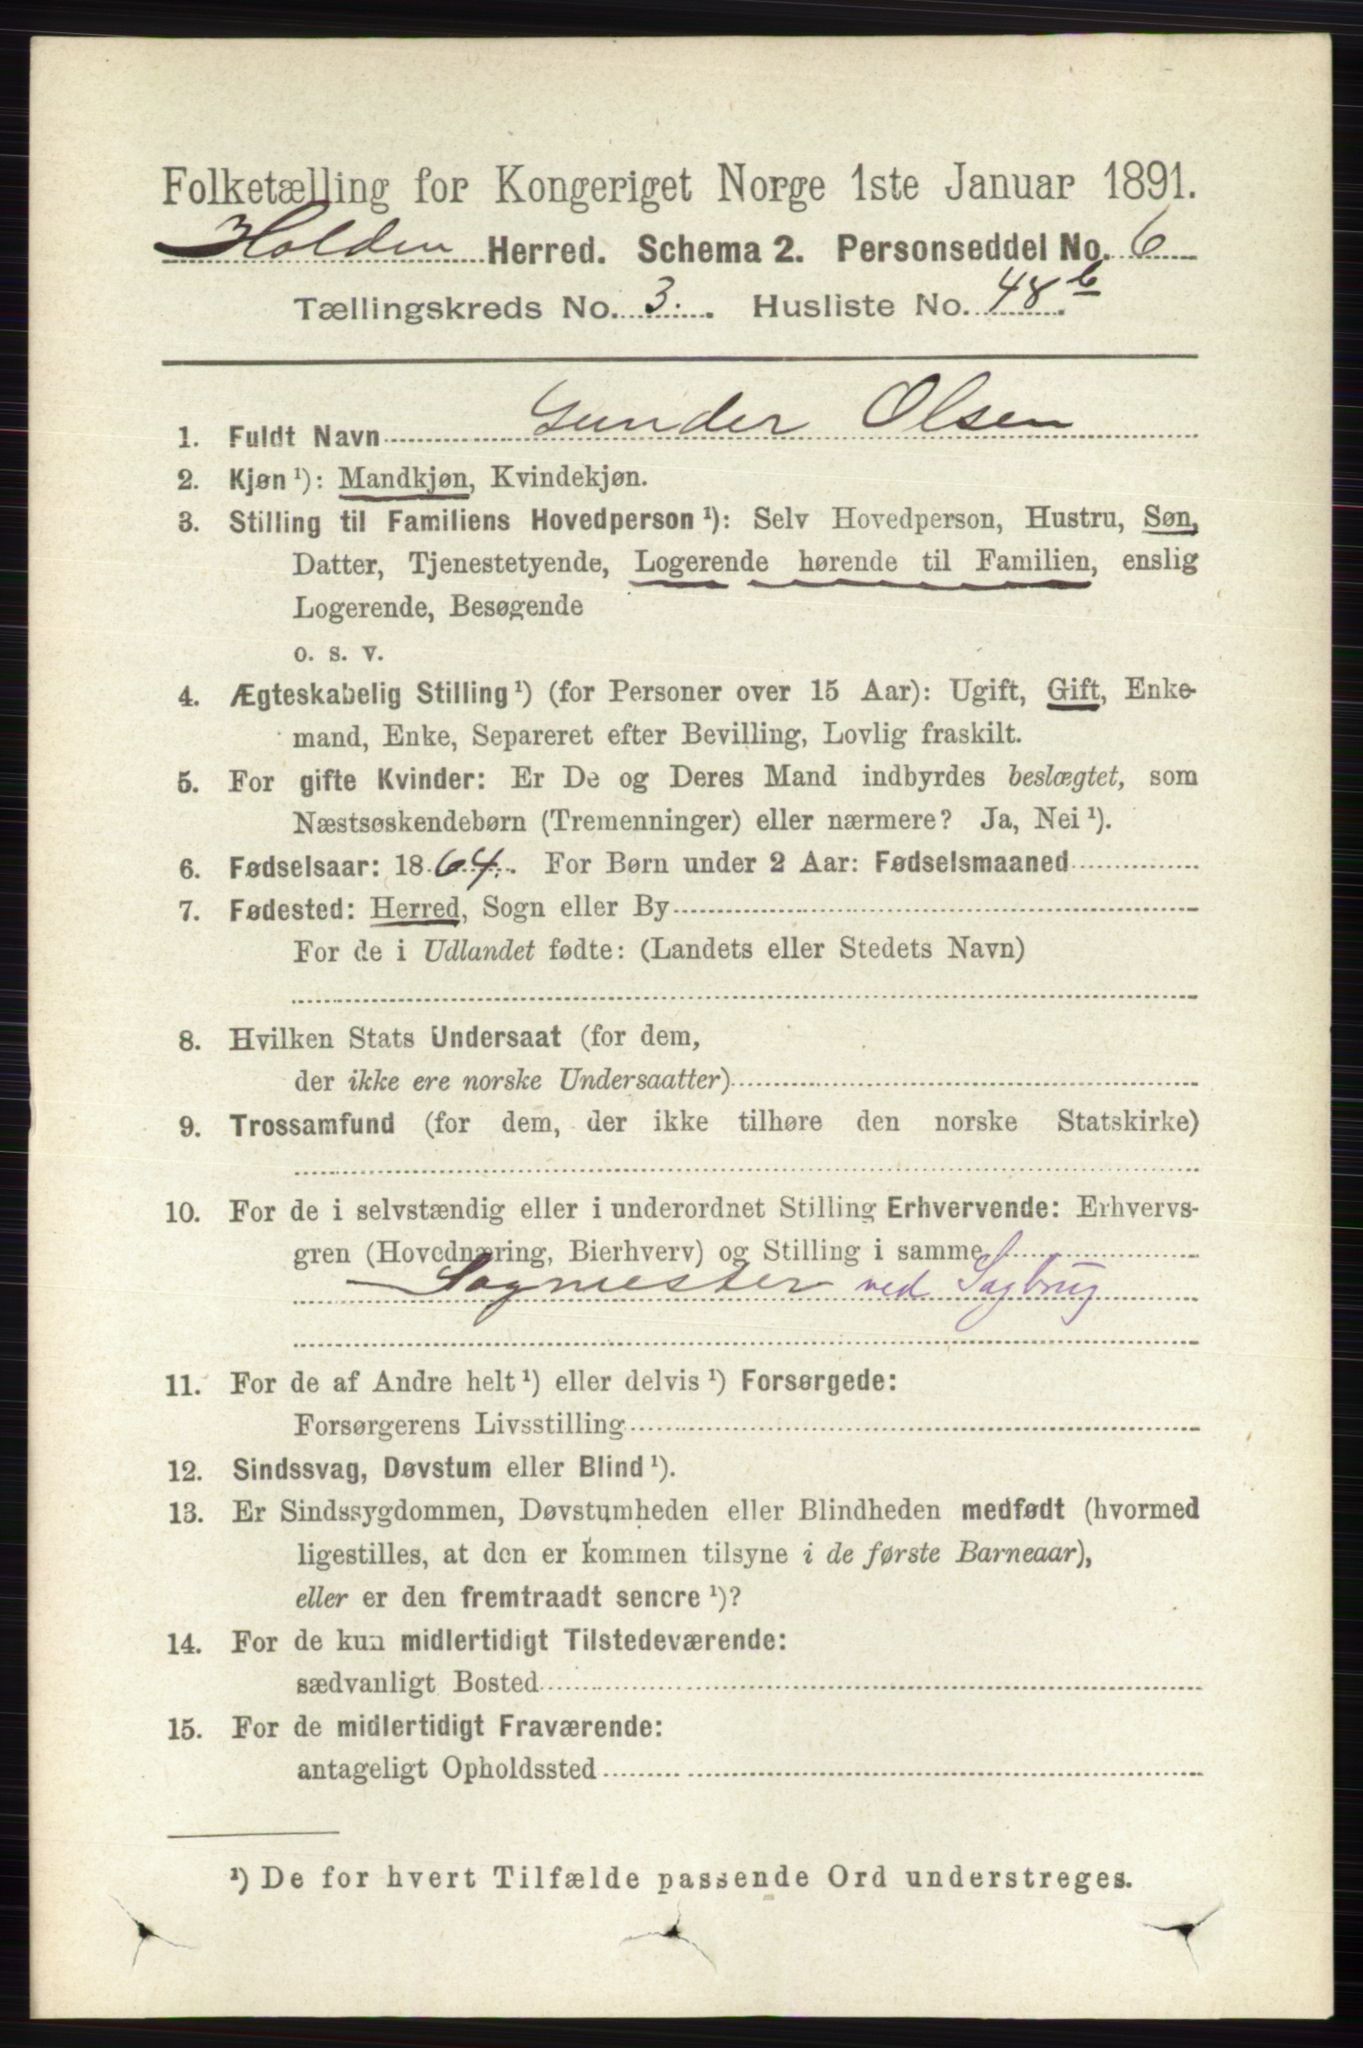 Folketælling for Kongeriget Norge 1ste Januar 1891.
Holden Herred. Schema 2. Personseddel No. 6
Tællingskreds No. 3. Husliste No. 48 b
1. Fuldt Navn Gunder Olsen
2. Kjøn ¹): Mandkjøn, Kvindekjøn.
3. Stilling til Familiens Hovedperson ¹): Selv Hovedperson, Hustru, Søn,
Datter, Tjenestetyende, Logerende hørende til Familien, enslig
Logerende, Besøgende
o. s. v.
4. Ægteskabelig Stilling ¹) (for Personer over 15 Aar): Ugift, Gift, Enke-
mand, Enke, Separeret efter Bevilling, Lovlig fraskilt.
5. For gifte Kvinder: Er De og Deres Mand indbyrdes beslægtet, som
Næstsøskendebørn (Tremenninger) eller nærmere? Ja, Nei ¹).
6. Fødselsaar: 1864. For Børn under 2 Aar: Fødselsmaaned
7. Fødested: Herred, Sogn eller By
For de i Udlandet fødte: (Landets eller Stedets Navn)
8. Hvilken Stats Undersaat (for dem,
der ikke ere norske Undersaatter)
9. Trossamfund (for dem, der ikke tilhøre den norske Statskirke)
10. For de i selvstændig eller i underordnet Stilling Erhvervende: Erhvervs-
gren (Hovednæring, Bierhverv) og Stilling i samme
Sagmester ved Sagbrug
11. For de af Andre helt ¹) eller delvis ¹) Forsørgede:
Forsørgerens Livsstilling
12. Sindssvag, Døvstum eller Blind ¹).
13. Er Sindssygdommen, Døvstumheden eller Blindheden medfødt (hvormed
ligestilles, at den er kommen tilsyne i de første Barneaar),
eller er den fremtraadt senere ¹)?
14. For de kun midlertidigt Tilstedeværende:
sædvanligt Bosted
15. For de midlertidigt Fraværende:
antageligt Opholdssted
¹) De for hvert Tilfælde passende Ord understreges.